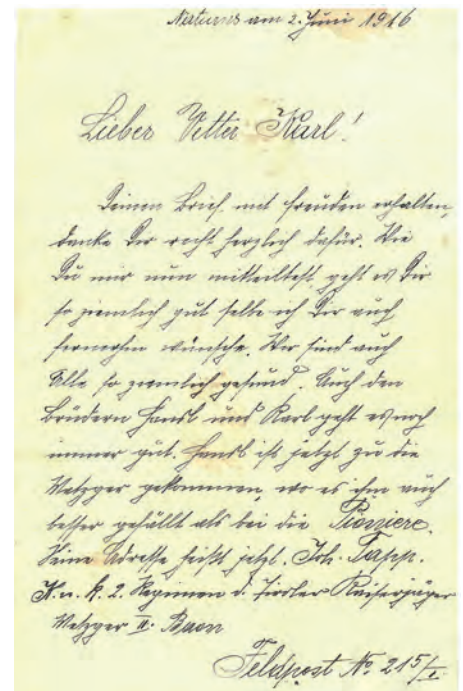 Naturns am 2. Juni 1916
Lieber Vetter Karl!
Deinen Brief mit freuden erhalten,
danke Dir recht herzlich dafür. Wie
Du mir nun mitteiltest, geht es Dir
so ziemlich gut selbe ich Dir auch
fernerhin wünsche. Wir sind auch
Alle so ziemlich gesund. Auch den
Brüdern Hansl und Karl geht es noch
immer gut. Hansl ist jetzt zu die
Metzger gekommen, wo es ihm auch
besser gefällt als bei die Pionniere.
Seine Adresse heißt jetzt. Joh. Tapp.
K. u. k. 2. Regimen d. Tiroler Kaiserjäger
Metzger II. Baon
Feldpost No. 215/I.